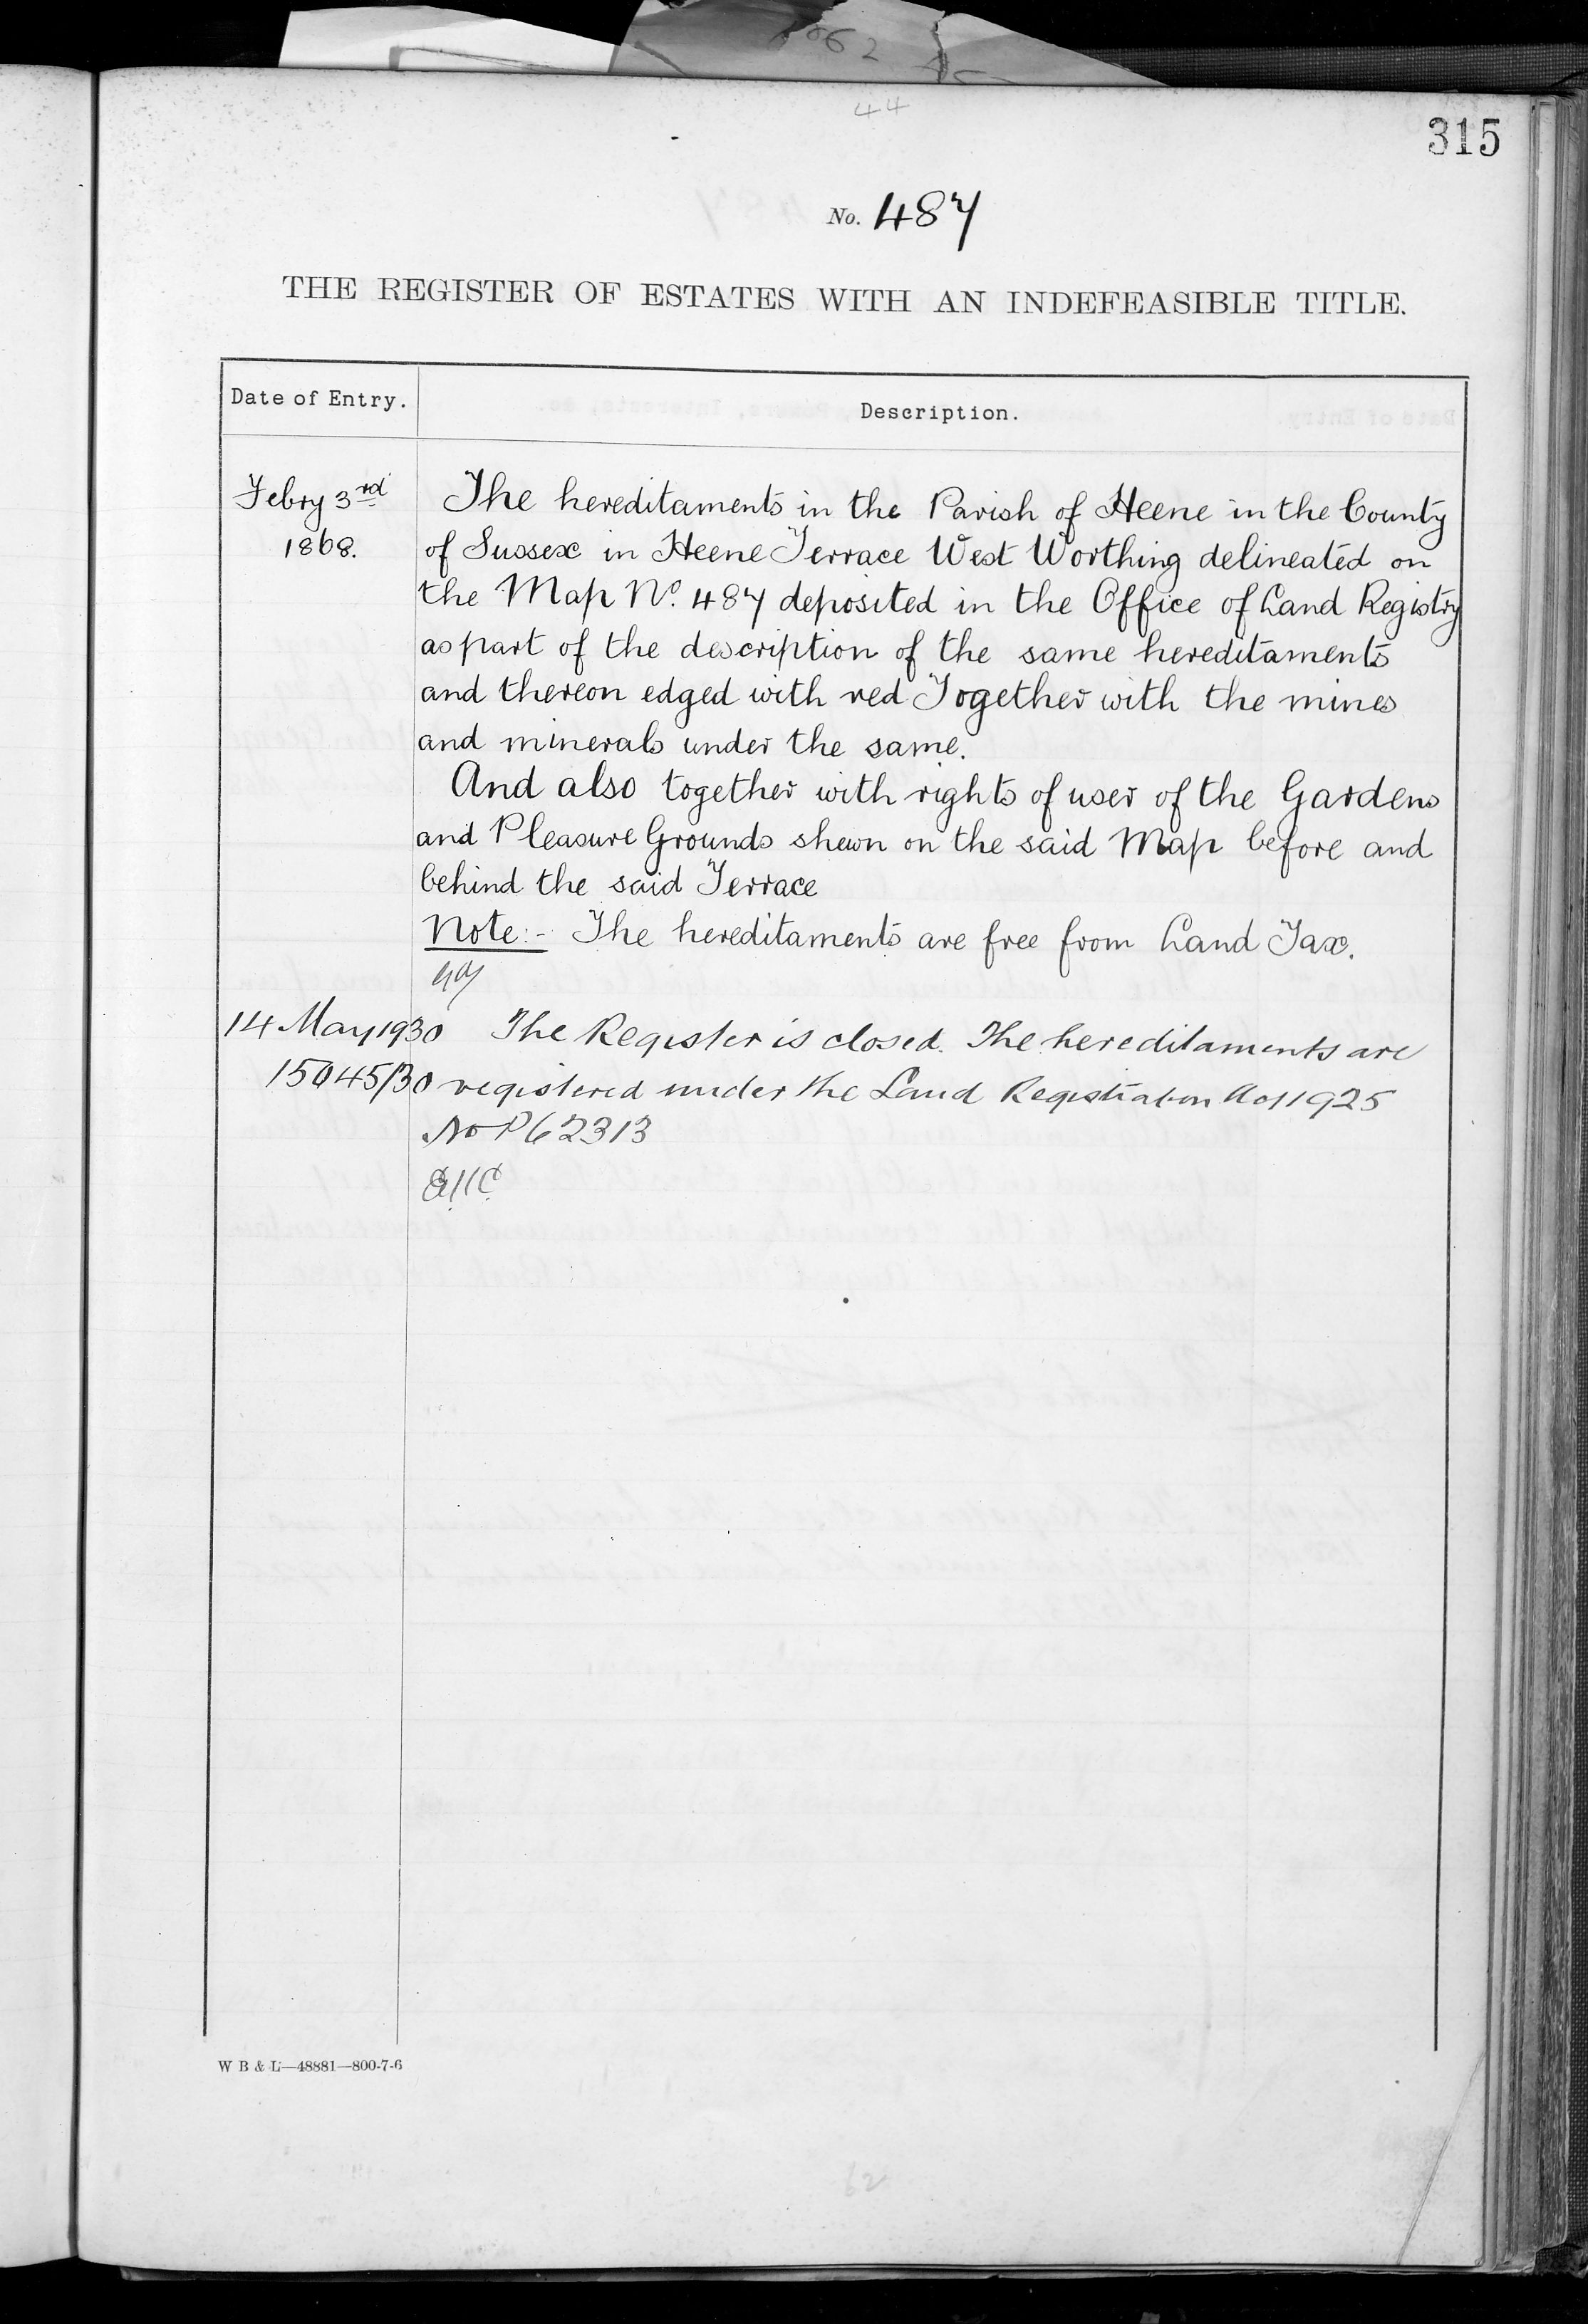 44
315
No. 487
THE REGISTER OF ESTATES WITH AN INDEFEASIBLE TITLE.
Date of Entry.
Description.
Febry 3rd
1868.
The hereditaments in the Parish of Heene in the County
of Sussex in Heene Terrace West Worthing delineated on
the Map No. 487 deposited in the Office of Land Registry
as part of the description of the same hereditaments
and thereon edged with red Together with the mines
and minerals under the same.
And also together with rights of user of the Gardens
and Pleasure Grounds shewn on the said Map before and
behind the said Terrace
Note:- The hereditaments are free from Land Tax.
14 May 1930 The Register is closed. The hereditaments are
15045/30 registered under the Land Registration Act 1925
No P62313
W B & L—48881—800-7-6
62